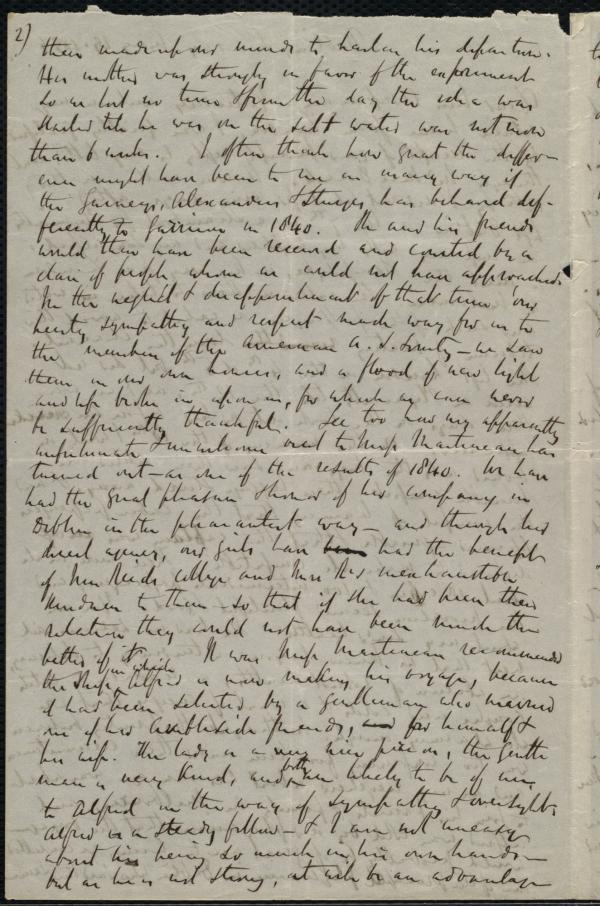 2)
then made up our minds to hasten his departure.
His mother was strongly in favor of the experiment
so we lost no time & from the day the idea was
started till he was on the salt water was not more
than 6 weeks. I often think how great the differ-
ence might have been to me in many ways if
the Gurneys, Alexanders & Sturges had behaved dif-
ferently to Garrison in 1840. He and his friends
would then have been received and courted by a
class of people whom we could not have approached.
In the neglect & disappointment of that time our
hearty sympathy and respect made way for us to
the members of the American A. S. Society – we saw
them in our own homes, and a flood of new light
and life broke in upon us, for which we can never
be sufficiently thankful. See too how my apparently
unfortunate & visit to Miss Martineau has
turned out – as one of the results of 1840. We have
had the great pleasure & honor of her company in
Dublin in the pleasantest way – and through her
direct agency, our girls have had the benefit
of Mrs Reids college and Mrs Rs inexhaustible
kindness to them – so that if she had been their
relation they could not have been much the
better of it. It was Miss Martineau recommended
the ship in which Alfred is now making his voyage, because
it had been selected by a gentleman who married
one of her Ambleside friends, for himself &
his wife. The lady is a very nice person, the gentle
man is very kind, and both are likely to be of use
to Alfred in the way of sympathy & oversight.
Alfred is a steady fellow – & I am not uneasy
about his being so much in his own hands –
but as he is not strong, it will be an advantage